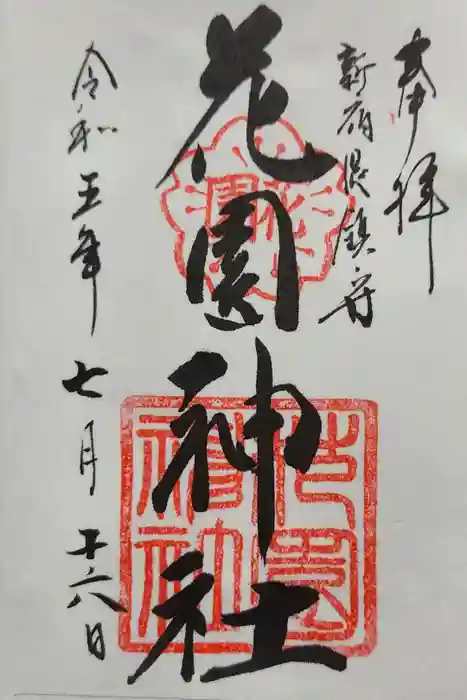 奉拝
新宿総鎮守
花園神社
令和五年七月十六日
花園神社